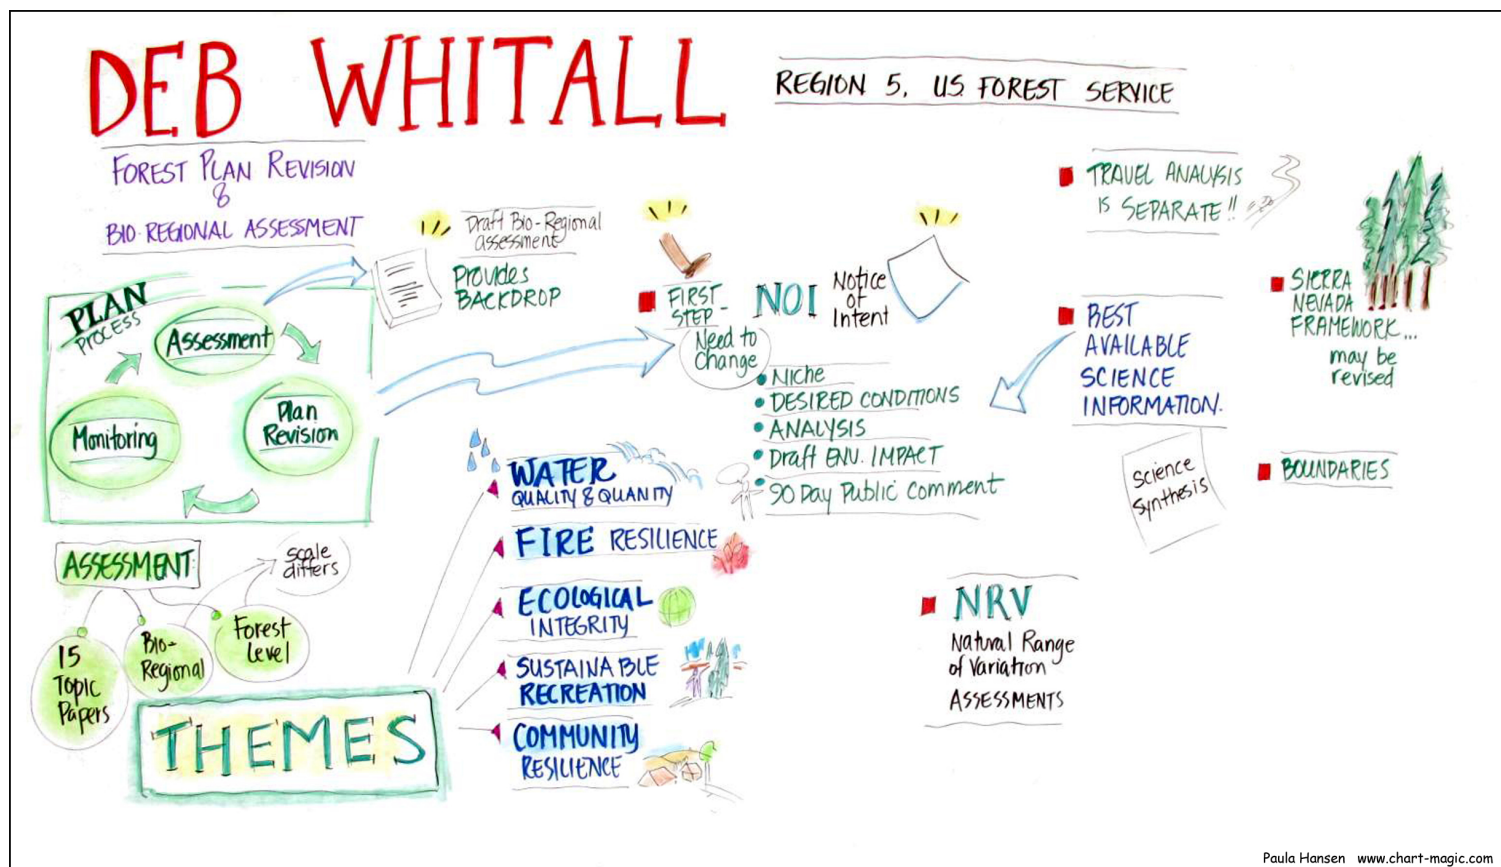 DEB WHITALL
REGION 5, U.S. FOREST SERVICE
FOREST PLAN REVISION
&
BIO-REGIONAL ASSESSMENT
PLAN
PROCESS
Assessment
Plan
Revision
Monitoring
Draft Bio-Regional
assessment
Provides
BACKDROP
FIRST
STEP -
Need to
Change
NOI
Notice
of
Intent
NICHE
DESIRED CONDITIONS
ANALYSIS
Draft ENV. IMPACT
90 Day Public Comment
TRAVEL ANALYSIS
IS SEPARATE!!
BEST
AVAILABLE
SCIENCE
INFORMATION.
Science
Synthesis
SIERRA
NEVADA
FRAMEWORK...
may be
revised
BOUNDARIES
NRV
Natural Range
of Variation
ASSESSMENTS
ASSESSMENT:
scale
differs
15
Topic
Papers
Bio-
Regional
Forest
Level
THEMES
WATER
QUALITY & QUANITY
FIRE RESILIENCE
ECOLOGICAL
INTEGRITY
SUSTAINABLE
RECREATION
COMMUNITY
RESILIENCE
Paula Hansen www.chart-magic.com